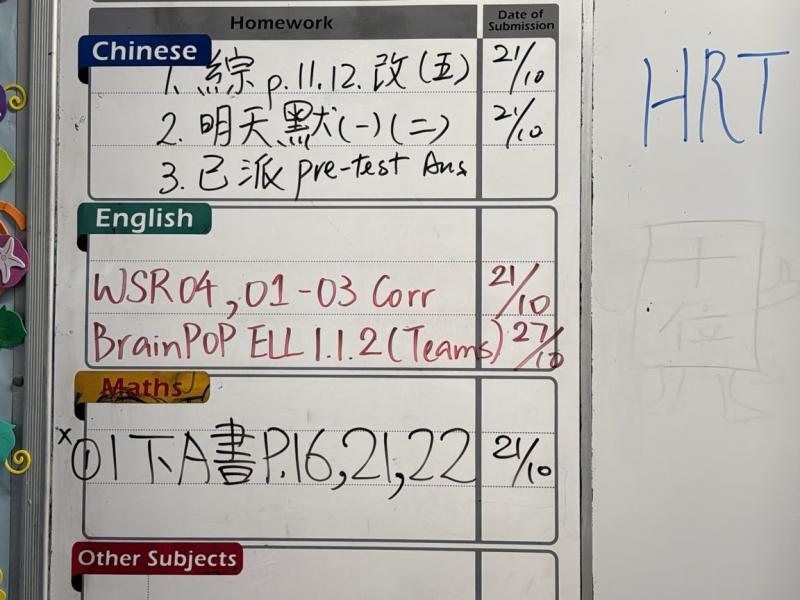 Homework
Date of Submission
Chinese
1. 綜 p.11.12. 改(五) 21/10
2. 明天默(一)(二) 21/10
3. 已派 pre-test Ans
English
WSR04, 01-03 Corr 21/10
BrainPOP ELL 1.1.2 (Teams) 27/10
Maths
x ① 1下A書P.16,21,22 21/10
Other Subjects
HRT
十
位